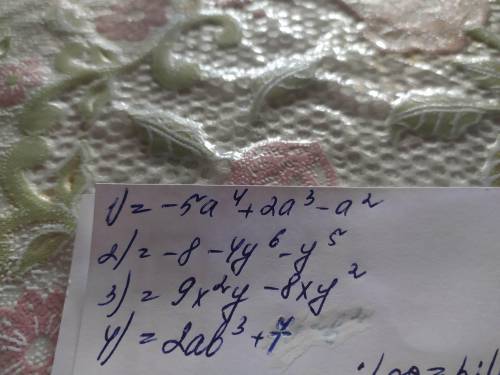 1) = -5a⁴ + 2a³ - a²
2) = -8 - 4y⁶ - y⁵
3) = 9x²y - 8xy²
4) = 2ab³ +